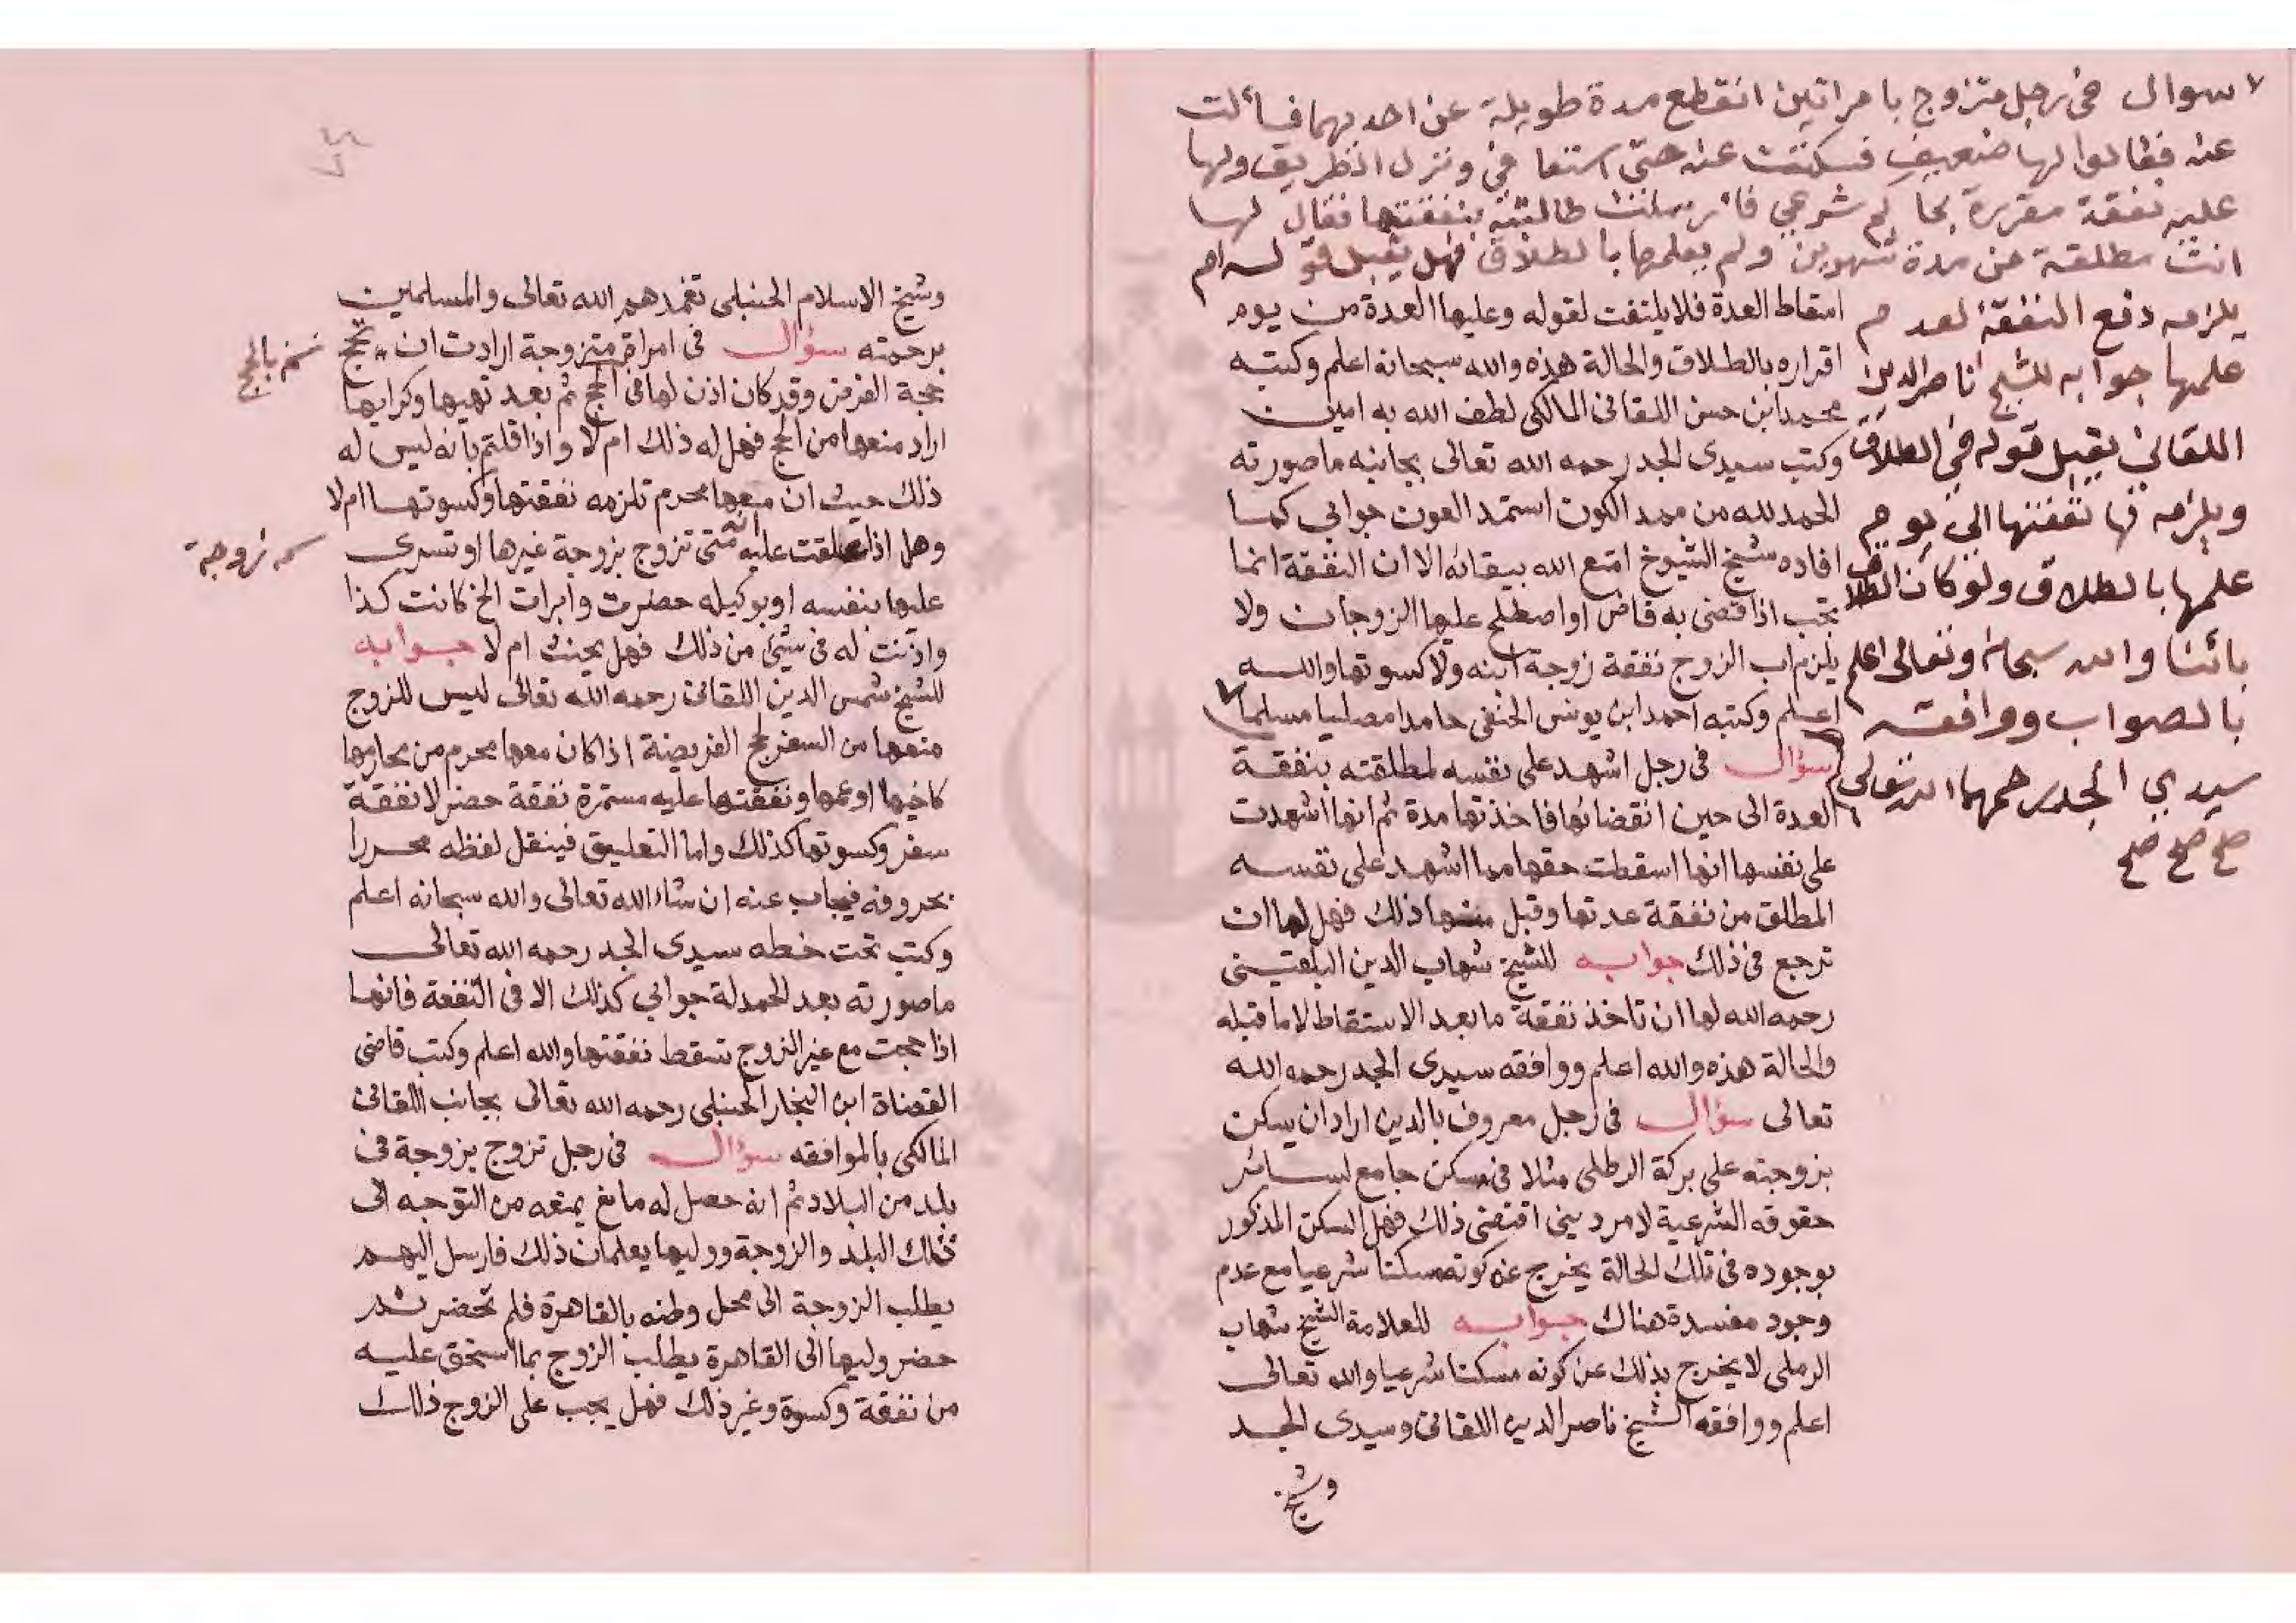 سوال في رجل متزوج بامراتين انقطع مدة طويلة عن احديهما فسألت
عنه فقالوا لها ضعيف فسكتت عنه حتى استعافى ونزل الطريق ولها
عليه نفقة مقررة بحاكم شرعي فأرسلت طالبته بنفقتها فقال لها
انت مطلقة من مدة شهرين ولم يعلمها بالطلاق فهل يقبل قوله ام
يلزمه دفع النفقة لعدم
علمها جوابه للشيخ ناصر الدين
اللقاني يقبل قوله في الطلاق
ويلزمه نفقتها الى يوم
علمها بالطلاق ولو كان الطلاق
بائنا والله سبحانه وتعالى اعلم
بالصواب ووافقه
سيدي الجد رحمهما الله تعالى
صح صح صح
اسقاط العدة فلا يلتفت لقوله وعليها العدة من يوم
اقراره بالطلاق والحالة هذه والله سبحانه اعلم وكتبه
محمد ابن حسن اللقانى المالكى لطف الله به امين
وكتب سيدى الجد رحمه الله تعالى بجانبه ما صورته
الحمد لله من ممد الكون استمد العون جوابي كما
افاده شيخ الشيوخ امتع الله ببقائه الا ان النفقة انما
تجب اذا قضى به قاض او اصطلح عليها الزوجان ولا
يلزم اب الزوج نفقة زوجة ابنه ولا كسوتها والله
اعلم وكتبه احمد ابن يونس الحنفى حامدا مصليا مسلما
سؤال فى رجل اشهد على نفسه لمطلقته بنفقة
العدة الى حين انقضائها فاخذتها مدة ثم انها اشهدت
على نفسها انها اسقطت حقها مما اشهد على نفسه
المطلق من نفقة عدتها وقبل منها ذلك فهل لها ان
ترجع فى ذلك جوابه للشيخ شهاب الدين البلقينى
رحمه الله لها ان تاخذ نفقة ما بعد الاسقاط لا ما قبله
والحالة هذه والله اعلم ووافقه سيدى الجد رحمه الله
تعالى سؤال فى رجل معروف بالدين اراد ان يسكن
بزوجته على بركة الرطلى مثلا فى مسكن جامع لسائر
حقوقه الشرعية لامر دينى اقتضى ذلك فهل السكن المذكور
بوجوده فى تلك الحالة يخرج عن كونه مسكنا شرعيا مع عدم
وجود مفسدة هناك جوابه للعلامة الشيخ شهاب
الرملى لا يخرج بذلك عن كونه مسكنا شرعيا والله تعالى
اعلم ووافقه الشيخ ناصر الدين اللقانى وسيدى الجد
وشيخ
وشيخ الاسلام الحنبلى تغمدهم الله تعالى والمسلمين
برحمته سؤال فى امراة متزوجة ارادت ان تحج
حجة الفرض وقد كان اذن لها فى الحج ثم بعد تهيها وكرايها
اراد منعها من الحج فهل له ذلك ام لا واذا قلتم بانه ليس له
ذلك حيث ان معها محرم تلزمه نفقتها وكسوتها ام لا
وهل اذا علقت عليه انه متى تزوج بزوجة غيرها او تسرى
عليها بنفسه او بوكيله حضرت وابرات الخ كانت كذا
واذنت له فى شئ من ذلك فهل يحنث ام لا جوابه
للشيخ شمس الدين اللقانى رحمه الله تعالى ليس للزوج
منعها من السفر لحج الفريضة اذا كان معها محرم من محارمها
كاخيها او عمها ونفقتها عليه مستمرة نفقة حضر لا نفقة
سفر وكسوتها كذلك واما التعليق فينقل لفظه محررا
بحروفه فيجاب عنه ان شاء الله تعالى والله سبحانه اعلم
وكتب تحت خطه سيدى الجد رحمه الله تعالى
ما صورته بعد الحمدلة جوابي كذلك الا فى النفقة فانها
اذا حجت مع غير الزوج تسقط نفقتها والله اعلم وكتب قاضى
القضاة ابن النجار الحنبلى رحمه الله تعالى بجانب اللقانى
المالكى بالموافقه سؤال فى رجل تزوج بزوجة فى
بلد من البلاد ثم انه حصل له مانع يمنعه من التوجه الى
تلك البلد والزوجة ووليها يعلمان ذلك فارسل اليهم
يطلب الزوجة الى محل وطنه بالقاهرة فلم تحضر ثم
حضر وليها الى القاهرة يطلب الزوج بما استحق عليه
من نفقة وكسوة وغير ذلك فهل يجب على الزوج ذلك